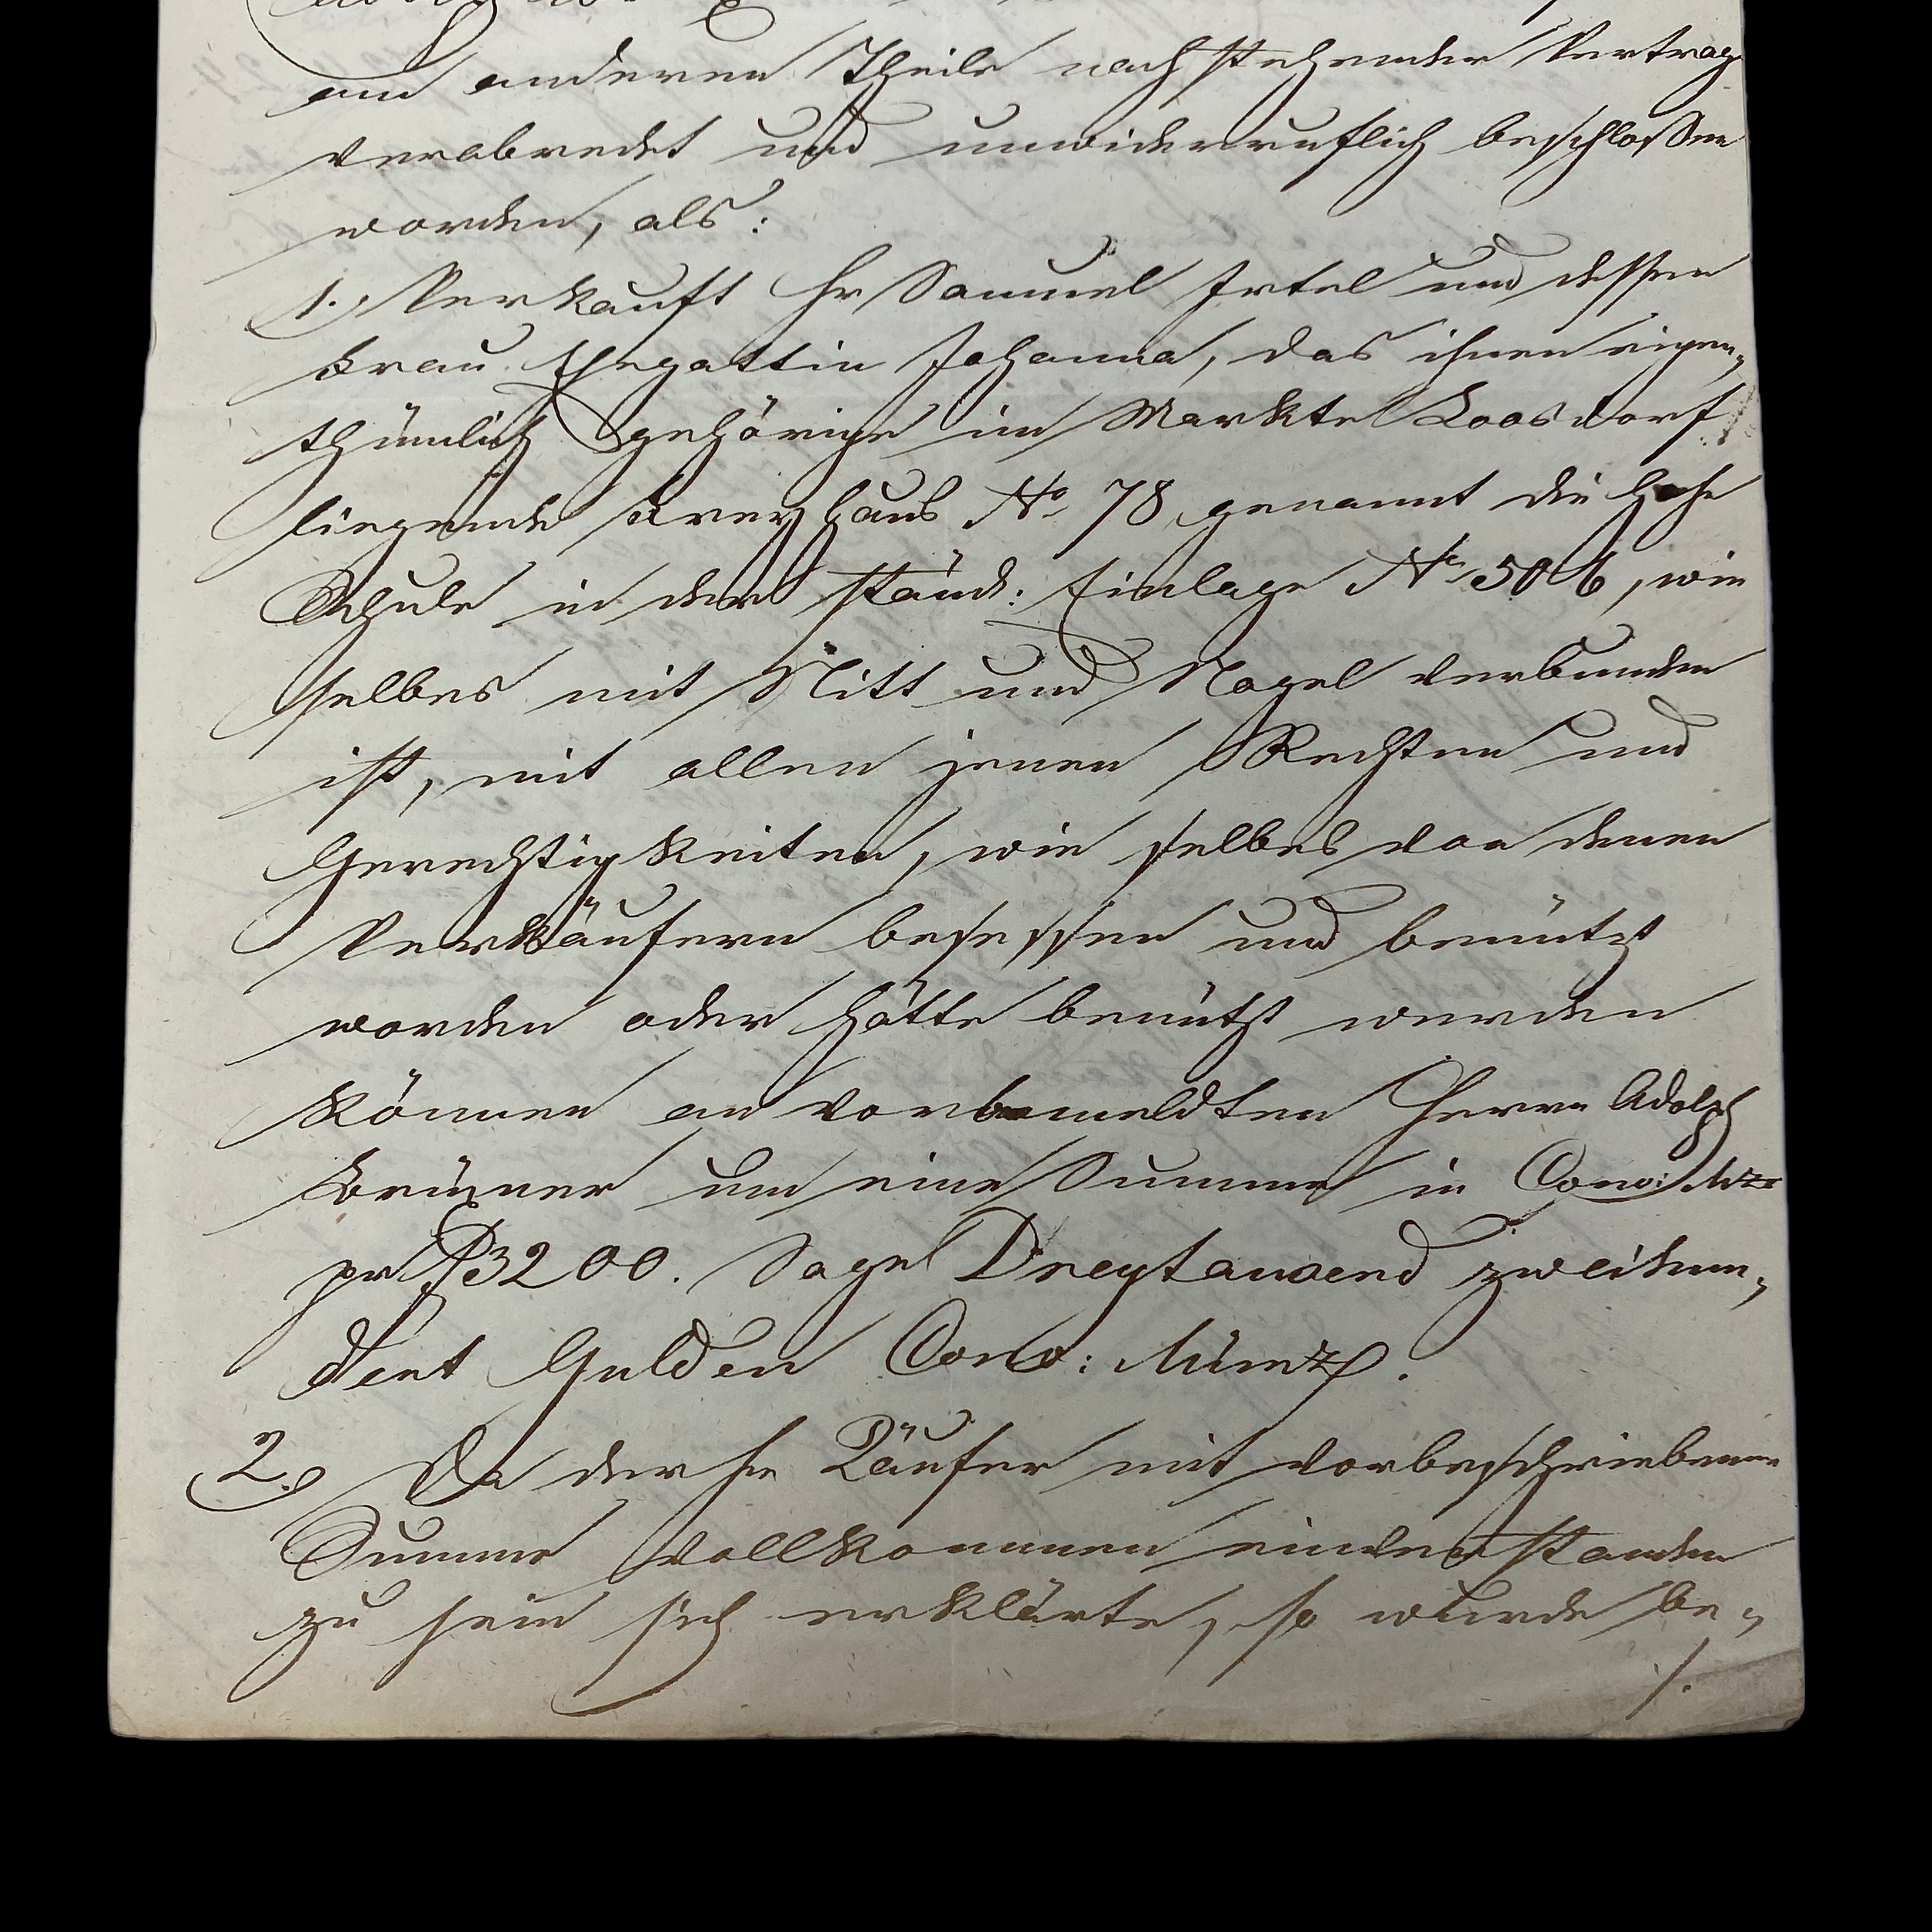 am anderen Theile nachstehender Vertrag
verabredet und unwiderruflich beschloßen
worden, als:
1. Verkauft Hr Samuel Irtel und dessen
Frau Ehegattin Johanna, das ihnen eigen„
thümlich gehörige im Markte Loosdorf
liegende Freyhaus No 78 genannt die hohe
Schule in der ständ: Einlage No 506, wie
selbes mit Nitt und Nagel verbunden
ist, mit allen jenen Rechten und
Gerechtigkeiten, wie selbes von denen
Verkäufern besessen und benützt
worden oder hätte benützt werden
können an vorbemeldten Herrn Adolph
um eine Summe in Conv: Mze
pr f 3200. Sage Dreytausend zweihun„
dert Gulden Conv: Münze.
2. Da der Hr Käufer mit vorbeschriebener
Summe vollkommen einverstanden
zu sein sich erklärte, so wurde be„
/.